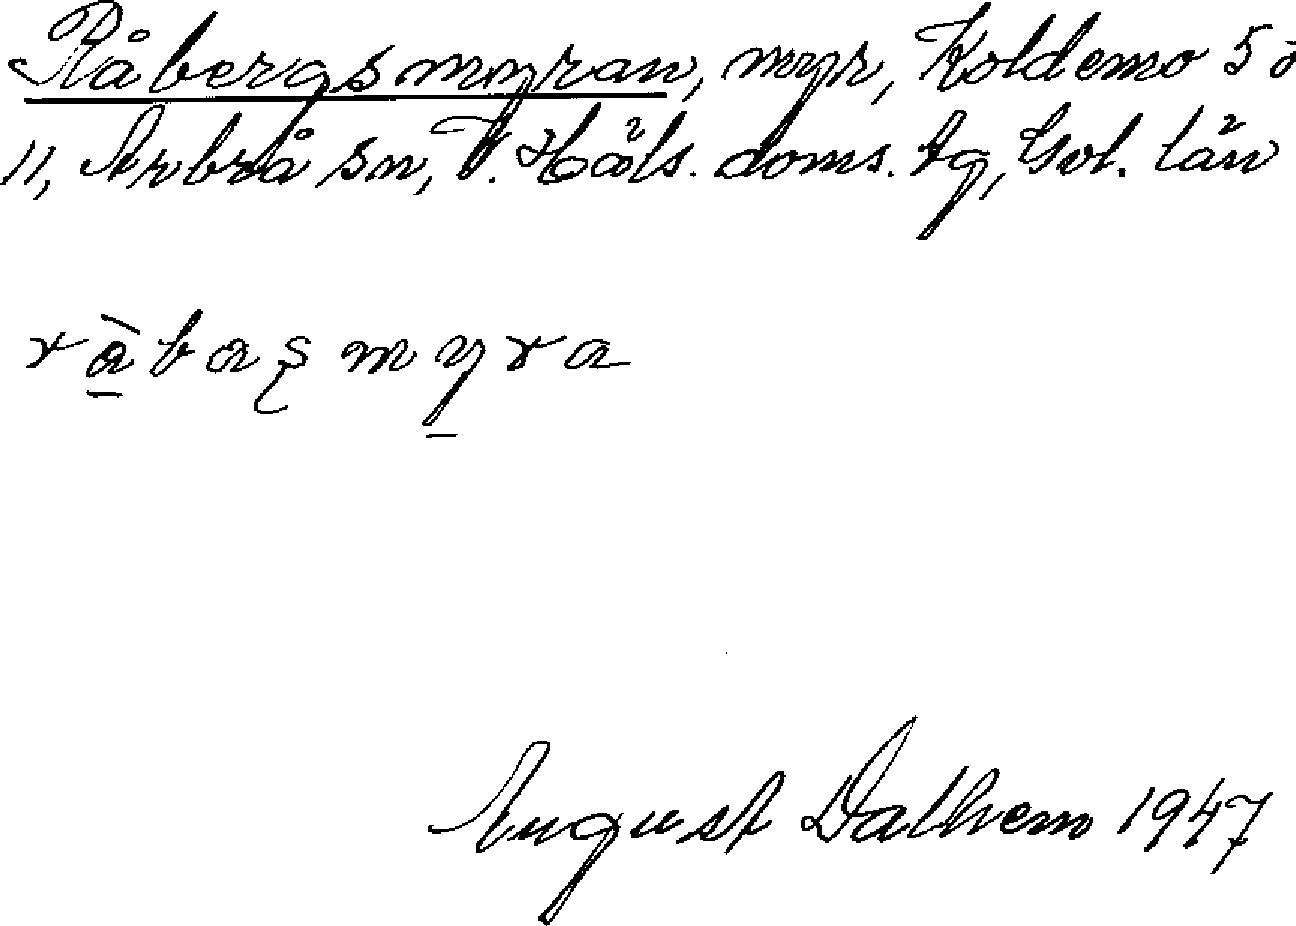 Råbergsmyran, myr, Koldemo 5 o
11, Arbrå sn, V. Häls. doms. tg, Gvl. län
ràbaʂmyra
August Dalhem 1947